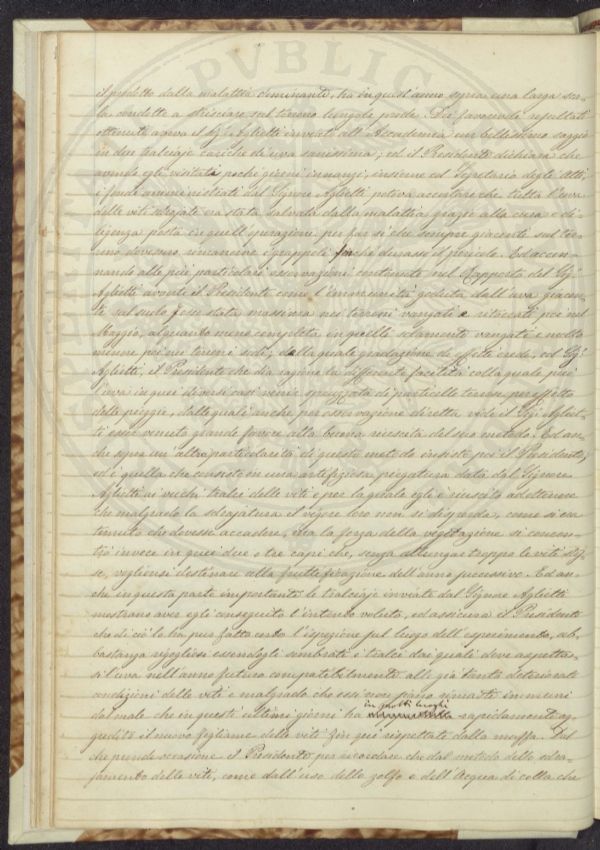 il prodotto dalla malattia dominante, ha in quest'anno sopra una larga sca-
la condotte a strisciare sul terreno lunghe prode. Dei favorevoli resultati
ottenuti aveva il Sig. Aglietti inviati all'Accademia un bellissimo saggio
in due tralciaje cariche di uva sanissima; ed il Presidente dichiara che
avendo egli visitati pochi giorni innanzi, insieme col Segretario degli Atti
i fondi amministrati dal Signore Aglietti poteva accertare che tutta l'uva
delle viti sdrajate era stata salvata dalla malattia grazie alla cura e di-
ligenza posta in quell'operazione per far sì che sempre giacente sul ter-
reno dovessero rimanere i grappoli finchè durasse il pericolo. Ed accen-
nando alle più particolari osservazioni contenute nel Rapporto del Sig.
Aglietti avverte il Presidente come l'immunità goduta dall'uva giacen-
te sul suolo fosse stata massima nei terreni vangati e ritoccati poi nel
Maggio, alquanto meno completa in quelli solamente vangati e molto
minore poi nei terreni sodi; della quale gradazione di effetti crede, col Sig.
Aglietti, il Presidente che dia ragione la differente facilità colla quale poi
l'uva in quei diversi casi venne spruzzata di particelle terrose per effetto
delle pioggie, dalle quali anche per osservazione diretta vide il Sig. Agliet-
ti esser venuto grande favore alla buona riuscita del suo metodo. Ed an-
che sopra un'altra particolarità di questo metodo insiste poi il Presidente,
ed è quella che consiste in una artifiziosa piegatura data dal Signore
Aglietti ai vecchi tralci delle viti e per la quale egli è riuscito ad ottenere
che malgrado la sdrajatura il vigore loro non si disperda, come si era
temuto che dovesse accadere, ma la forza della vegetazione si concen-
tri invece in quei due o tre capi che, senza allungar troppo le viti stes-
se, vogliensi destinare alla fruttificazione dell'anno successivo. Ed an-
che in questa parte importante le tralciaje inviate dal Signore Aglietti
mostrano aver egli conseguito l'intento voluto, ed assicura il Presidente
che di ciò lo ha pur fatto certo l'ispezione sul luogo dell'esperimento, ab-
bastanza rigogliosi essendogli sembrati i tralci dai quali deve aspettar-
si l'uva nell'anno futuro compatibilmente alle già tanto deteriorate
condizioni delle viti e malgrado che essi non siano rimasti immuni
dal male che in questi ultimi giorni ha in molti luoghi rapidamente ag-
gredito il nuovo fogliame delle viti fin qui rispettate dalla muffa. Dal
che prende occasione il Presidente per ricordare che dal metodo dello sdra-
jamento delle viti, come dall'uso dello zolfo e dell'Acqua di colla che